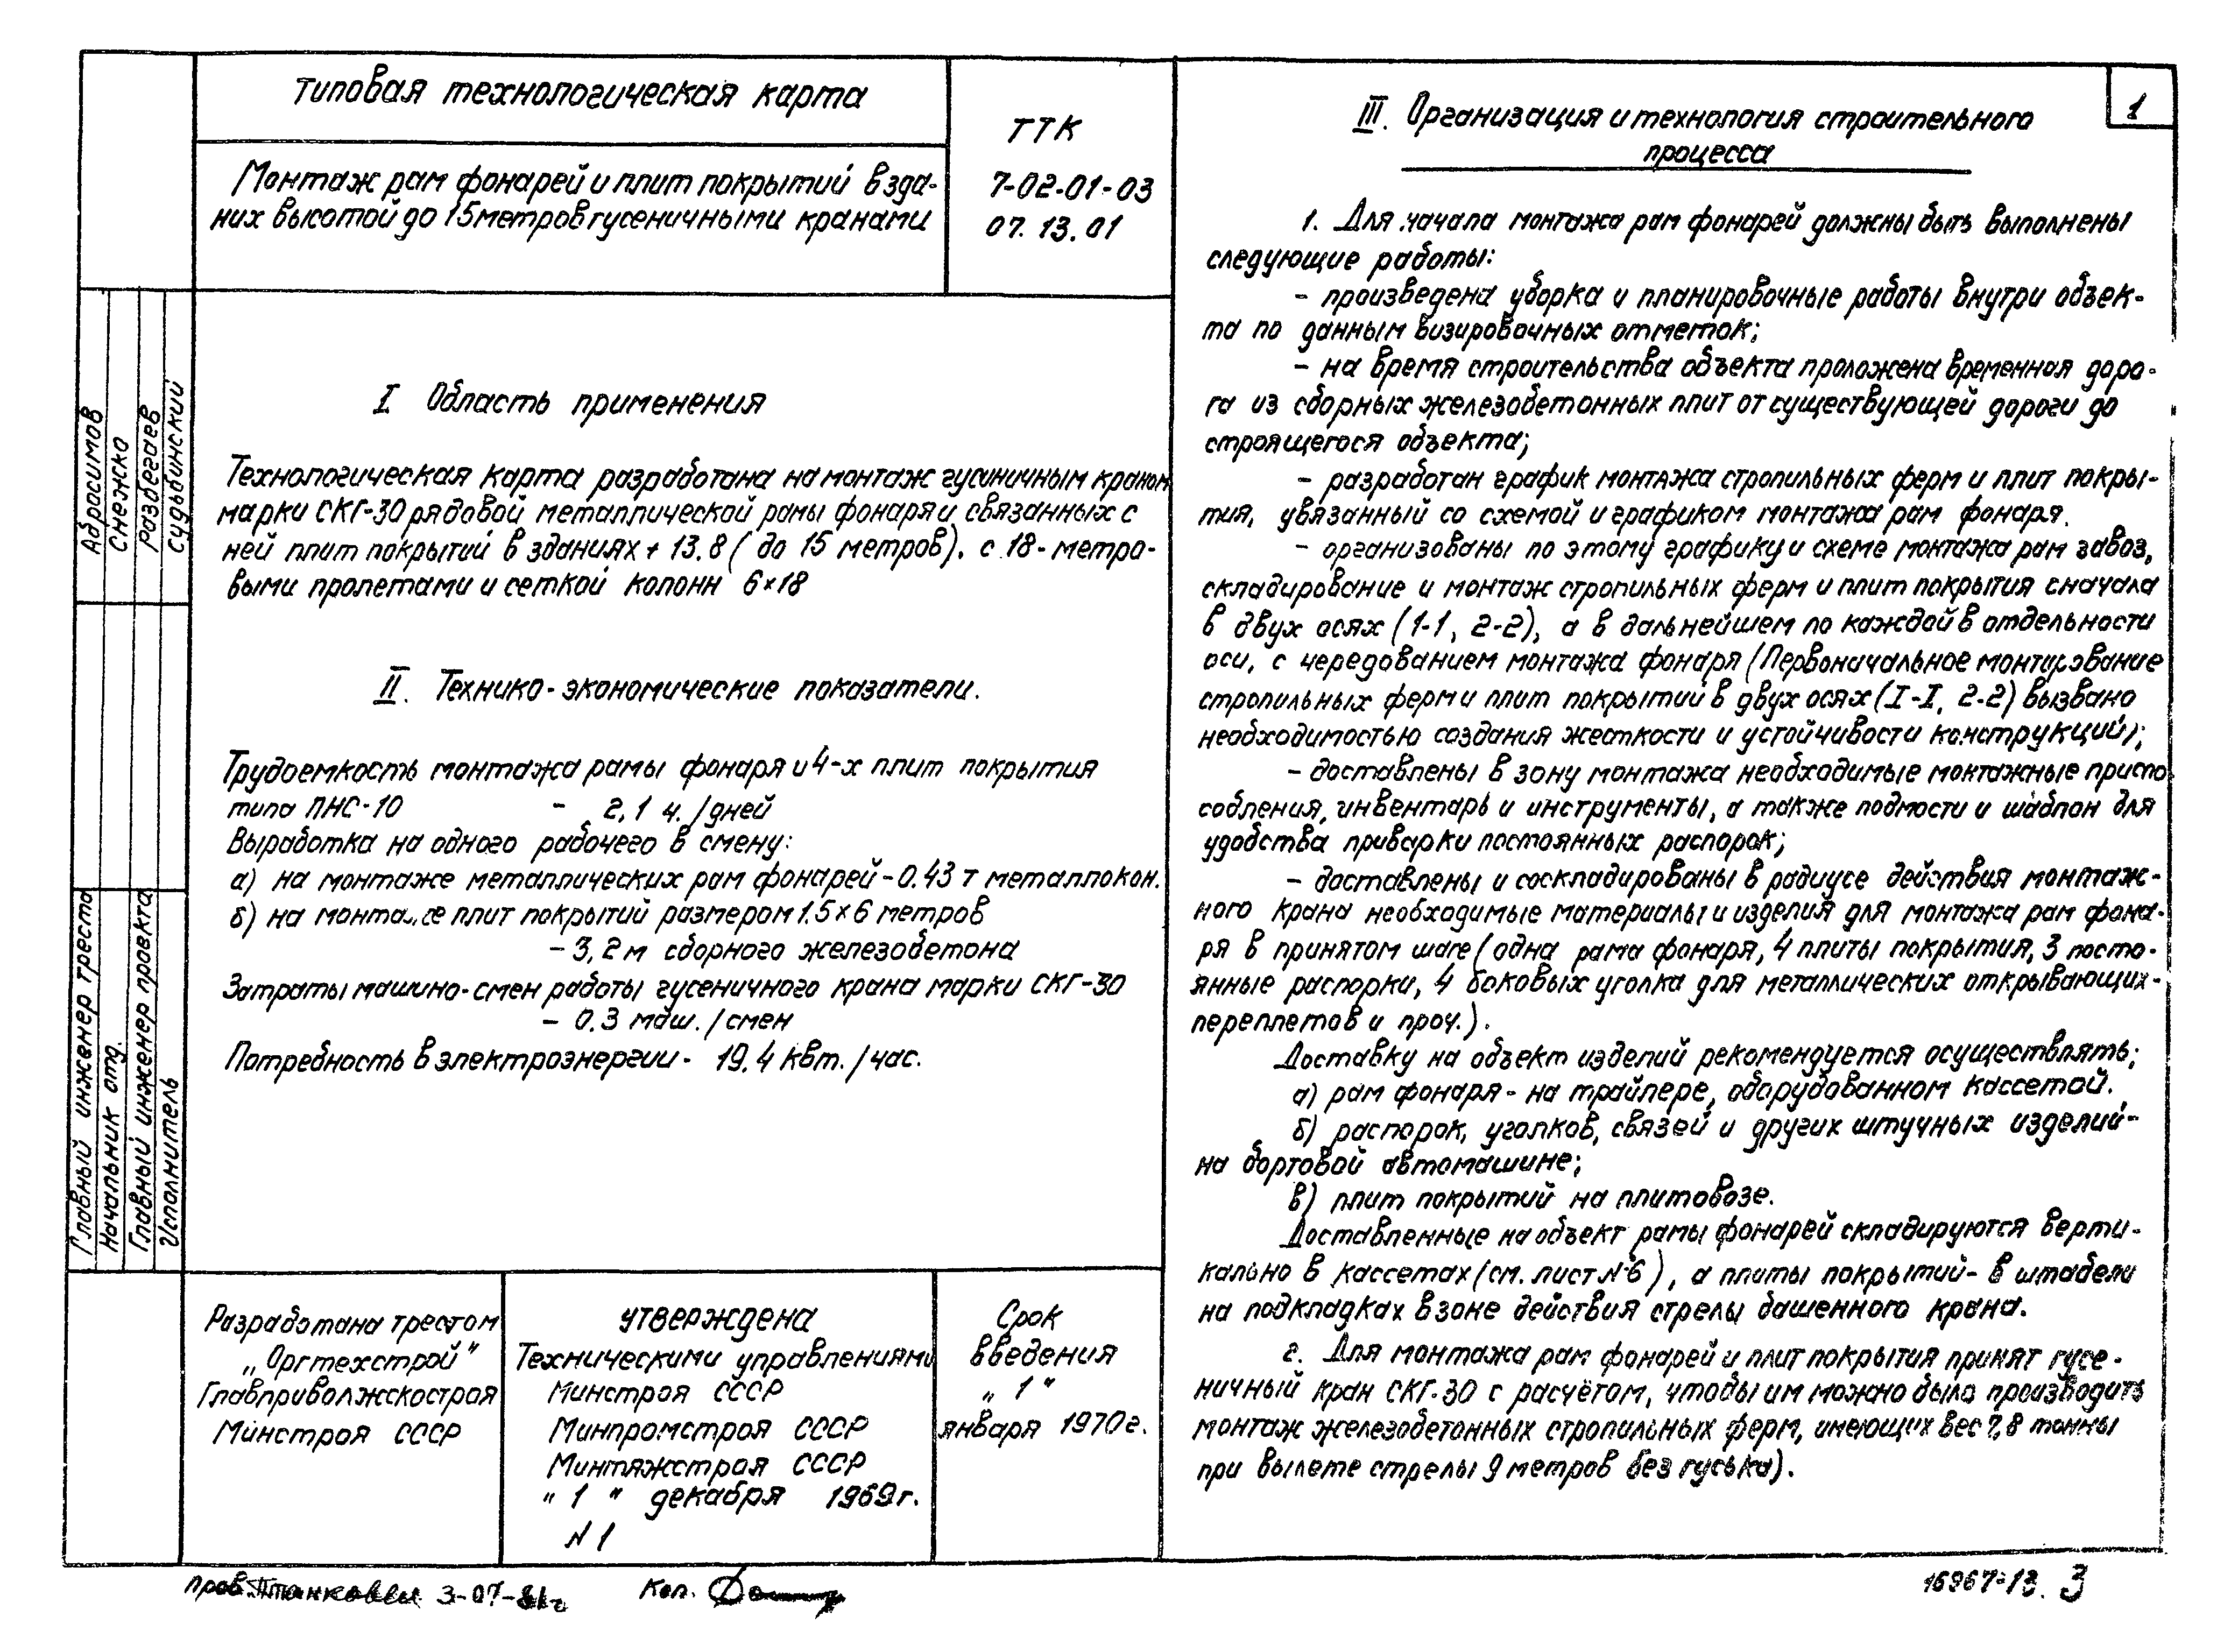 Типовая технологическая карта
Монтаж рам фонарей и плит покрытий в зда-
них высотой до 15 метров гусеничными кранами
ТТК
7-02-01-03
07.13.01
Абросимов
Снежко
Разбегаев
Судьбинский
Главный инженер треста
Начальник отд.
Главный инженер проекта
Исполнитель
I Область применения
Технологическая карта разработана на монтаж гусиничным краном
марки СКГ-30 рядовой металлической рамы фонаря и связанных с
ней плит покрытий в зданиях + 13.8 (до 15 метров). с 18-метро-
выми пролетами и сеткой колонн 6×18
II. Технико-экономические показатели.
Трудоемкость монтажа рамы фонаря и 4-х плит покрытия
типа ПНС-10 - 2,1 ч./дней
Выработка на одного рабочего в смену:
а) на монтаже металлических рам фонарей - 0.43 т металлокон.
б) на монтаже плит покрытий размером 1.5×6 метров
- 3,2 м сборного железобетона
Затраты машино-смен работы гусеничного крана марки СКГ-30
- 0.3 маш./смен
Потребность в электроэнергии - 19.4 квт./час.
Разработана трестом
„Оргтехстрой"
Главприволжскостроя
Минстроя СССР
утверждена
Техническими управлениями
Минстроя СССР
Минпромстроя СССР
Минтяжстроя СССР
„ 1 " декабря 1969г.
N 1
Срок
введения
„ 1 "
января 1970г.
1
III. Организация и технология строительного
процесса
1. Для начала монтажа рам фонарей должны быть выполнены
следующие работы:
- произведена уборка и планировочные работы внутри объек-
та по данным визировочных отметок;
- на время строительства объекта проложена временная доро-
га из сборных железобетонных плит от существующей дороги до
строящегося объекта;
- разработан график монтажа стропильных ферм и плит покры-
тия, увязанный со схемой и графиком монтажа рам фонаря.
- организованы по этому графику и схеме монтажа рам завоз,
складирование и монтаж стропильных ферм и плит покрытия сначала
в двух осях (1-1, 2-2), а в дальнейшем по каждой в отдельности
оси, с чередованием монтажа фонаря (Первоначальное монтирование
стропильных ферм и плит покрытий в двух осях (I-I, 2-2) вызвано
необходимостью создания жесткости и устойчивости конструкций);
- доставлены в зону монтажа необходимые монтажные приспо
собления, инвентарь и инструменты, а также подмости и шаблон для
удобства приварки постоянных распорок;
- доставлены и соскладированы в радиусе действия монтаж-
ного крана необходимые материалы и изделия для монтажа рам фона-
ря в принятом шаге (одна рама фонаря, 4 плиты покрытия, 3 посто-
янные распорки, 4 боковых уголка для металлических открывающих-
переплетов и проч.).
Доставку на объект изделий рекомендуется осуществлять;
а) рам фонаря - на трайлере, оборудованном кассетой.
б) распорок, уголков, связей и других штучных изделий-
на бортовой автомашине;
в) плит покрытий на плитовозе.
Доставленные на объект рамы фонарей складируются верти-
кально в кассетах (см. лист N-6), а плиты покрытий - в штабели
на подкладках в зоне действия стрелы башенного крана.
г. Для монтажа рам фонарей и плит покрытия принят гусе-
ничный кран СКГ-30 с расчётом, чтобы им можно было производить
монтаж железобетонных стропильных ферм, имеющих вес 7,8 тонны
при вылете стрелы 9 метров без гуська).
пров. 3-07-81г
Коп.
16967-13. 3